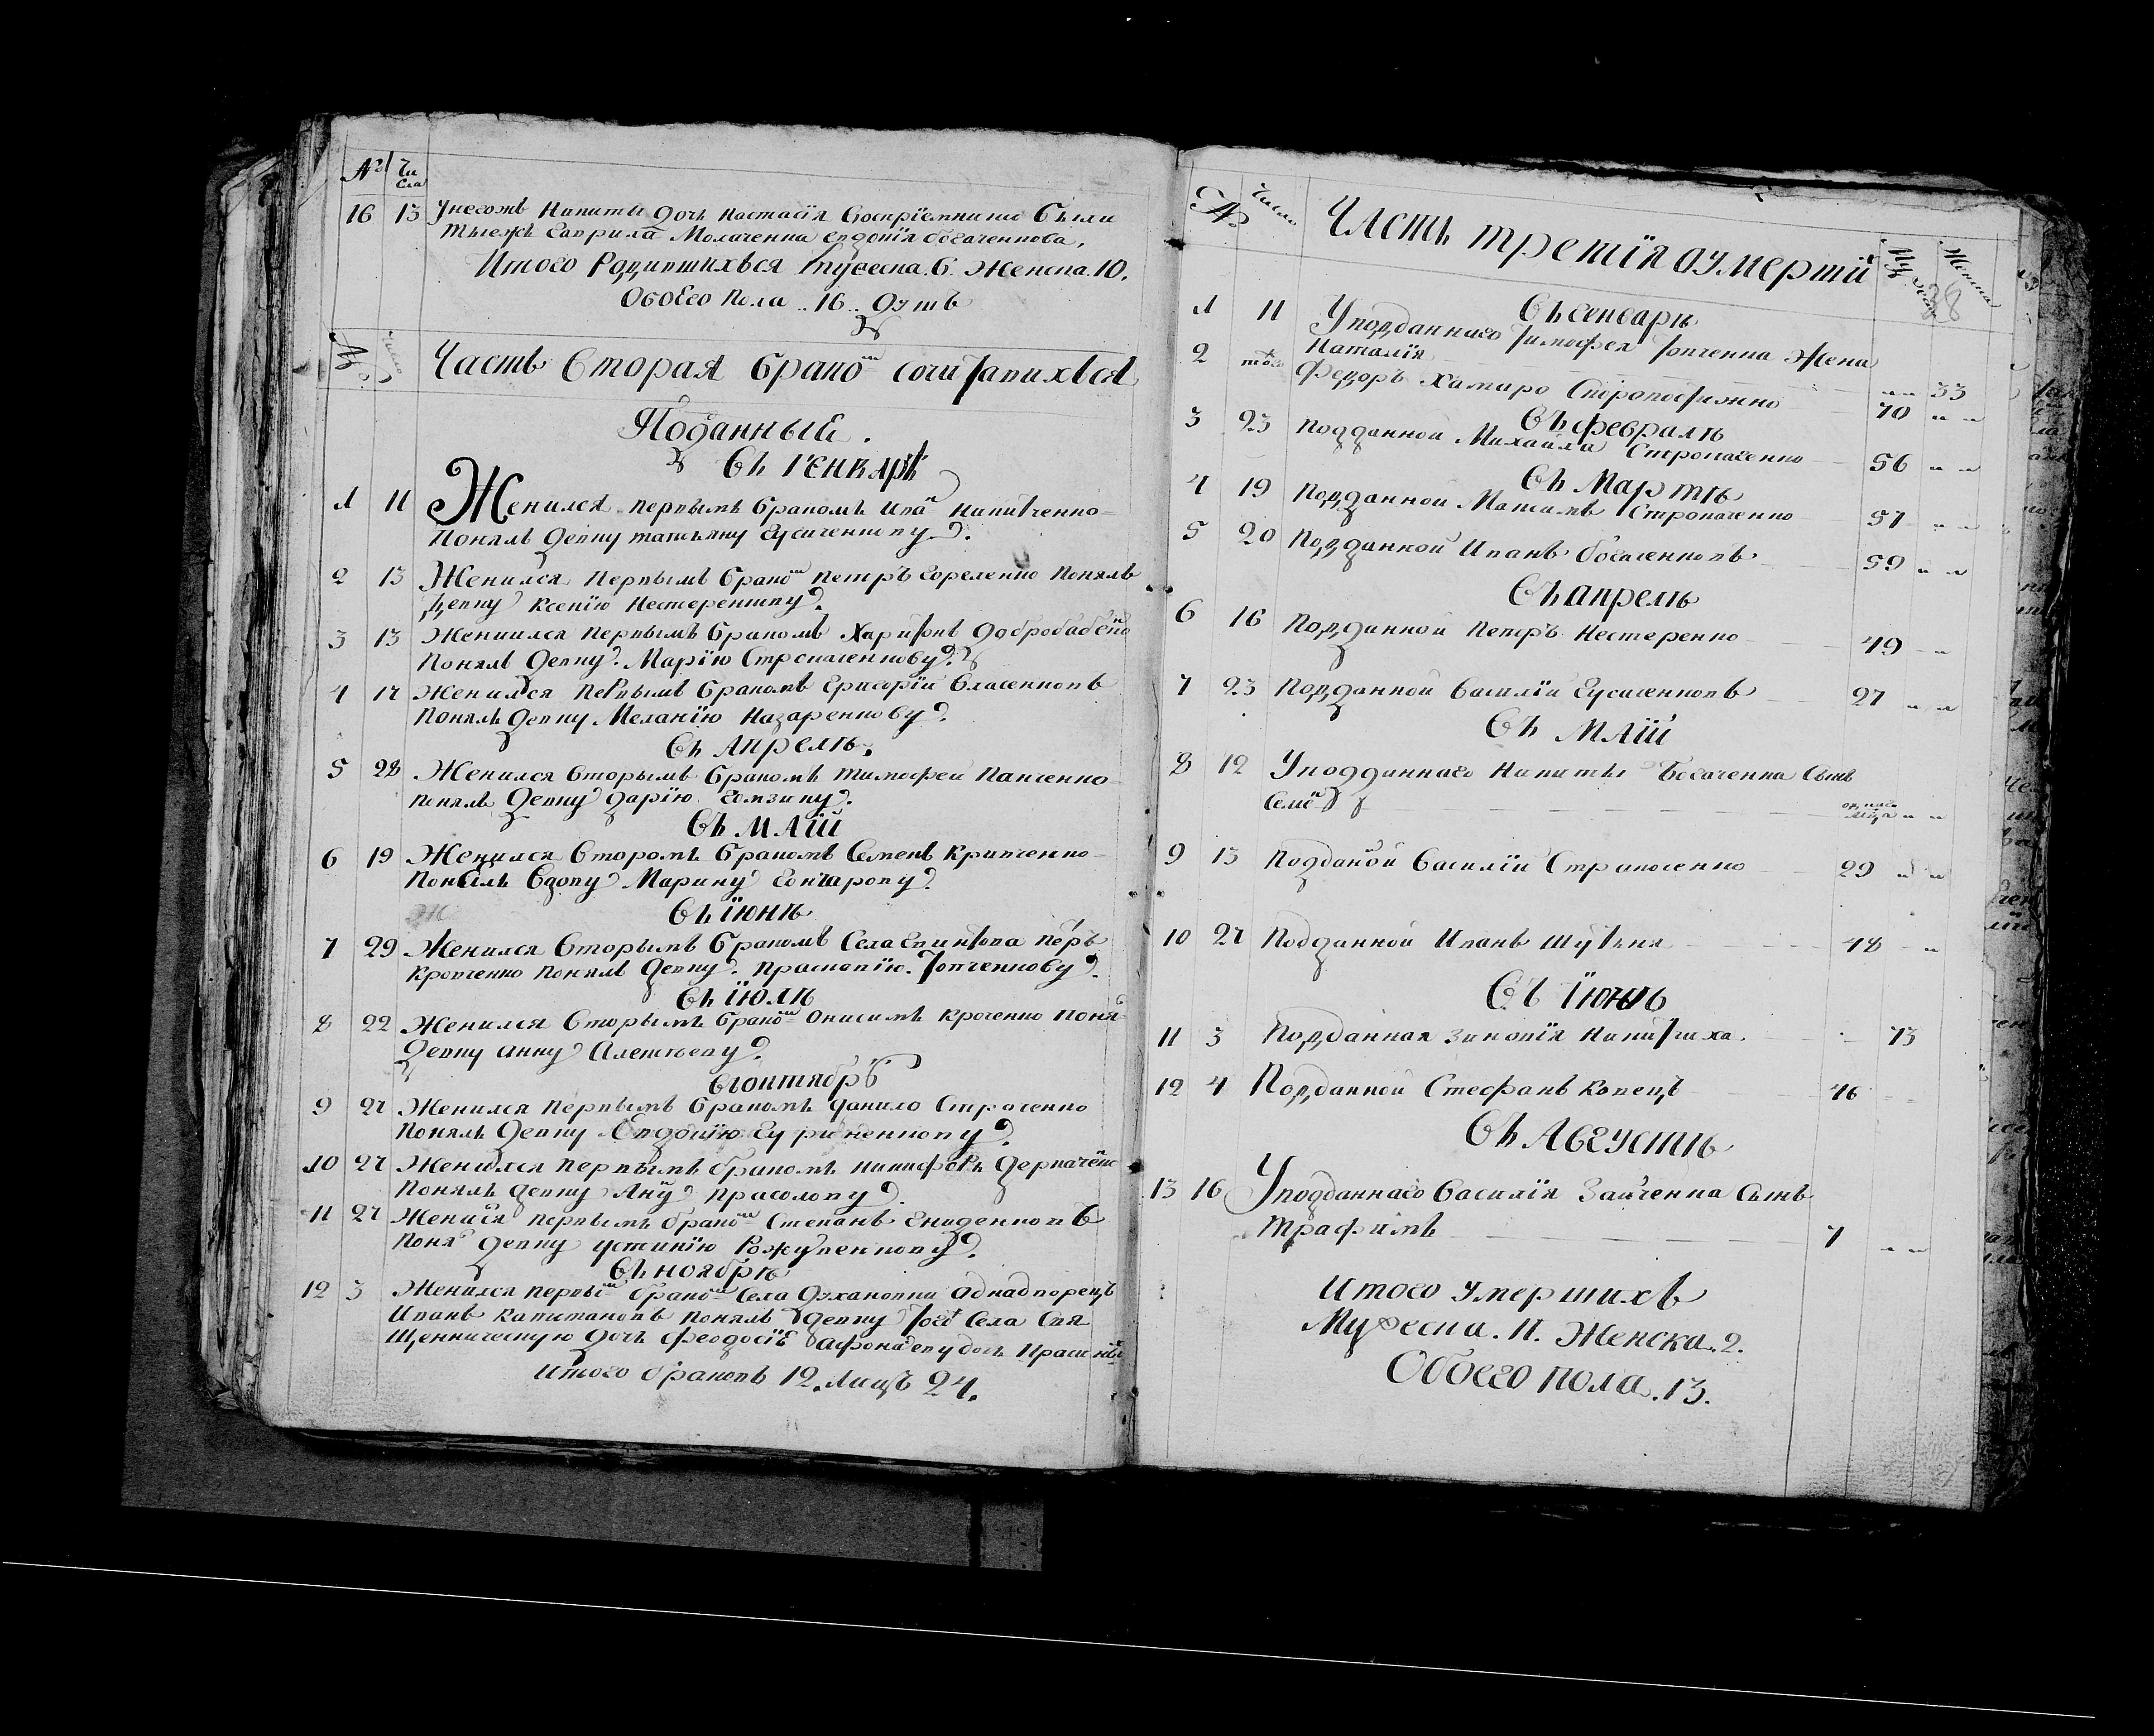 № Числа
16 13 Унегожъ Никиты дочь Настасія Воспріемники были
тыежъ Гаврила Молаченка Евдокія богаченкова.
Итого Родившихъся Мужеска. 6. Женска. 10.
Обоего Пола .. 16 .. Душъ
№ Число Часть Вторая Бракомъ сочитавихъся
Поданныи.
Въ Генварѣ
1 11 Женился первымъ бракомъ Ива Никитченко
Понялъ девку татьяну Гусаченкову.
2 13 Женился Первымъ бракомъ петръ Гореленко Понялъ
девку Ксенію Нестеренкову.
3 13 Женился первымъ бракомъ Харитонъ Добробабенко
Понялъ девку Марію Строкаченкову.
4 17 Женился первымъ бракомъ Григорій Власенковъ
Понялъ девку Меланію Назаренкову.
Въ Апрелѣ.
5 28 Женился вторымъ бракомъ тимофей Панченко
понялъ девку дарію Гомзину.
Въ Маіи
6 19 Женился второмъ бракомъ Семенъ Кривченко
Понялъ вдову Марину Гончарову.
Въ Іюнѣ
7 29 Женился вторымъ бракомъ Села
Кровченко понялъ девку Праскопію Товченкову.
Въ Іюлѣ
8 22 Женился Вторымъ бракомъ Онисимъ Кроченко Поня
девку анну Алектѣеву.
Вьоктябрѣ
9 27 Женился первымъ бракомъ данило Строченко
понялъ девку Евдокію
10 27 Женился первымъ бракомъ никифоръ Деркаченко
Понялъ девку Анну Прасолову.
11 27 Женися первымъ бракомъ Степанъ
Поня девку устинію Рожувенкову.
Въ ноябрѣ
12 3 Женился первы бракомъ Села однадворецъ
Иванъ Капитановъ понялъ девку того Села Свя
щенническую дочь Феодосіе Афона
Итого браковъ 12. Лицъ 24.
№ Число Часть третія оумертии Мужеска Женска
38
Въ генварѣ
1 11 Уподданнаго Тимофея Товченка Жена
Наталія 33
2 тогожъ Федоръ Хамаро Скоропостижно 70
Въ феврале
3 23 Подданной Михайла Строкаченко 56
Въ Мартѣ
4 19 Подданной Максимъ Строкаченко 57
5 20 Подданной Иванъ богаченковъ 59
Въ апрелѣ
6 16 Подданной Петръ Нестеренко 49
7 23 Подданной Василій Гусаченковъ 27
Въ Маіи
8 12 Уподданнаго Никиты Богаченка Сынъ
Семенъ однаго мѣца
9 13 Подданой Василіи Строкоченко 29
10 27 Подданной Иванъ Шутька 48
Въ Іюнѣ
11 3 Подданная Зиновія Никитчиха 73
12 4 Подданной Стефанъ Ковецъ 46
Въ Августѣ
13 16 Уподданнаго Василія Заиченка Сынъ
Трафимъ 7
Итого умершихъ
Мужеска. 11. Женска. 2.
Обоего пола. 13.